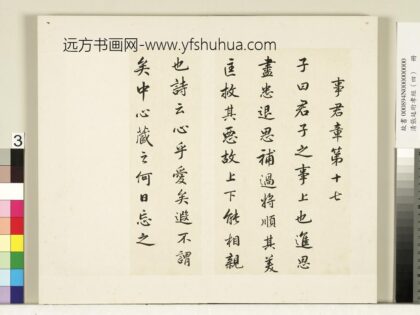 远方书画网-www.yfshuhua.com
事君章第十七
子曰君子之事上也進思
盡忠退思補過將順其美
匡救其惡故上下能相親
也詩云心乎愛矣遐不謂
矣中心藏之何日忘之
3